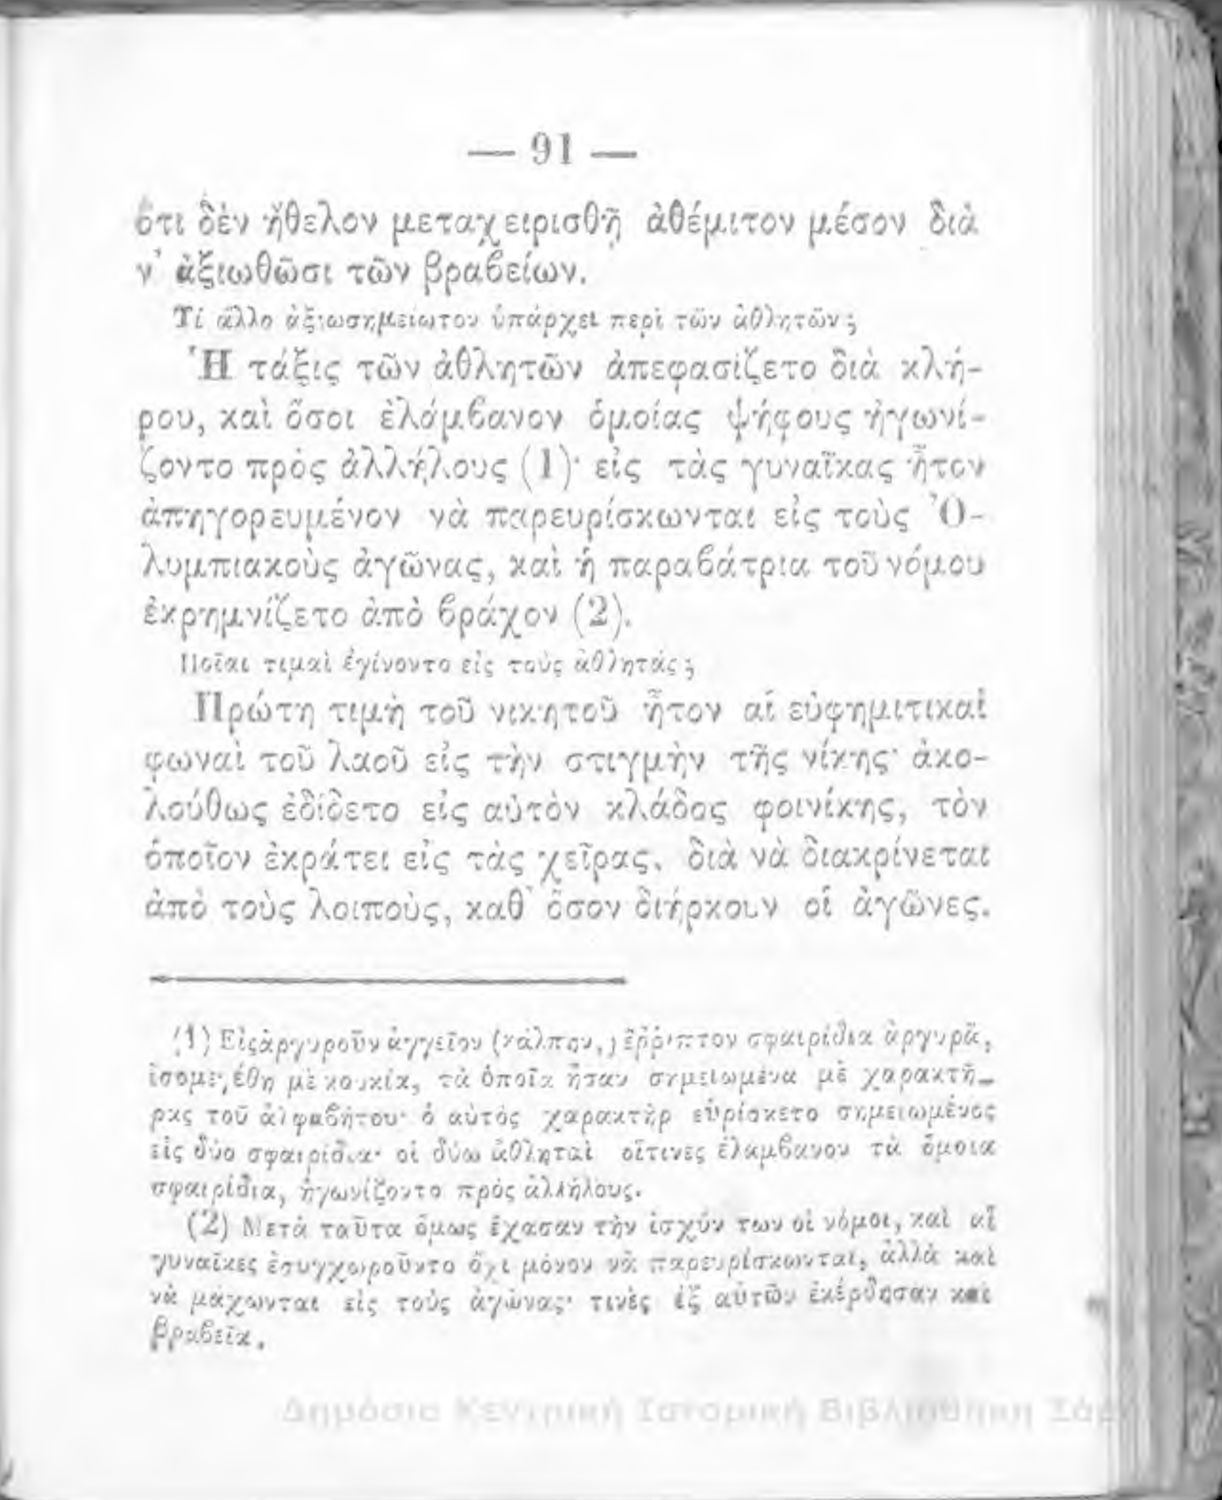 — 91 —
ὅτι δὲν ἤθελον μεταχειρισθῇ ἀθέμιτον μέσον διὰ
ν' ἀξιωθῶσι τῶν βραβείων.
Τί ἄλλο ἀξιοσημείωτον ὑπάρχει περὶ τῶν ἀθλητῶν;
Ἡ τάξις τῶν ἀθλητῶν ἀπεφασίζετο διὰ κλή-
ρου, καὶ ὅσοι ἐλάμβανον ὁμοίας ψήφους ἠγωνί-
ζοντο πρὸς ἀλλήλους (1)· εἰς τὰς γυναῖκας ἦτον
ἀπηγορευμένον νὰ παρευρίσκωνται εἰς τοὺς Ὀ-
λυμπιακοὺς ἀγῶνας, καὶ ἡ παραβάτρια τοῦ νόμου
ἐκρημνίζετο ἀπὸ βράχον (2).
Ποῖαι τιμαὶ ἐγίνοντο εἰς τοὺς ἀθλητάς;
Πρώτη τιμὴ τοῦ νικητοῦ ἦτον αἱ εὐφημιτικαὶ
φωναὶ τοῦ λαοῦ εἰς τὴν στιγμὴν τῆς νίκης· ἀκο-
λούθως ἐδίδετο εἰς αὐτὸν κλάδος φοινίκης, τὸν
ὁποῖον ἐκράτει εἰς τὰς χεῖρας, διὰ νὰ διακρίνεται
ἀπὸ τοὺς λοιποὺς, καθ' ὅσον διήρκουν οἱ ἀγῶνες.
(1) Εἰς ἀργυροῦν ἀγγεῖον (κάλπην,) ἔῤῥιπτον σφαιρίδια ἀργυρᾶ,
ἰσομεγέθη μὲ κουκία, τὰ ὁποῖα ἦσαν σημειωμένα μὲ χαρακτῆ-
ρας τοῦ ἀλφαβήτου· ὁ αὐτὸς χαρακτὴρ εὑρίσκετο σημειωμένος
εἰς δύο σφαιρίδια· οἱ δύω ἀθληταὶ οἵτινες ἐλάμβανον τὰ ὅμοια
σφαιρίδια, ἠγωνίζοντο πρὸς ἀλλήλους.
(2) Μετὰ ταῦτα ὅμως ἔχασαν τὴν ἰσχύν των οἱ νόμοι, καὶ αἱ
γυναῖκες ἐσυγχωροῦντο ὄχι μόνον νὰ παρευρίσκωνται, ἀλλὰ καὶ
νὰ μάχωνται εἰς τοὺς ἀγῶνας· τινὲς ἐξ αὐτῶν ἐκέρδησαν καὶ
βραβεῖα.
Δημόσια Κεντρική Ιστορική Βιβλιοθήκη